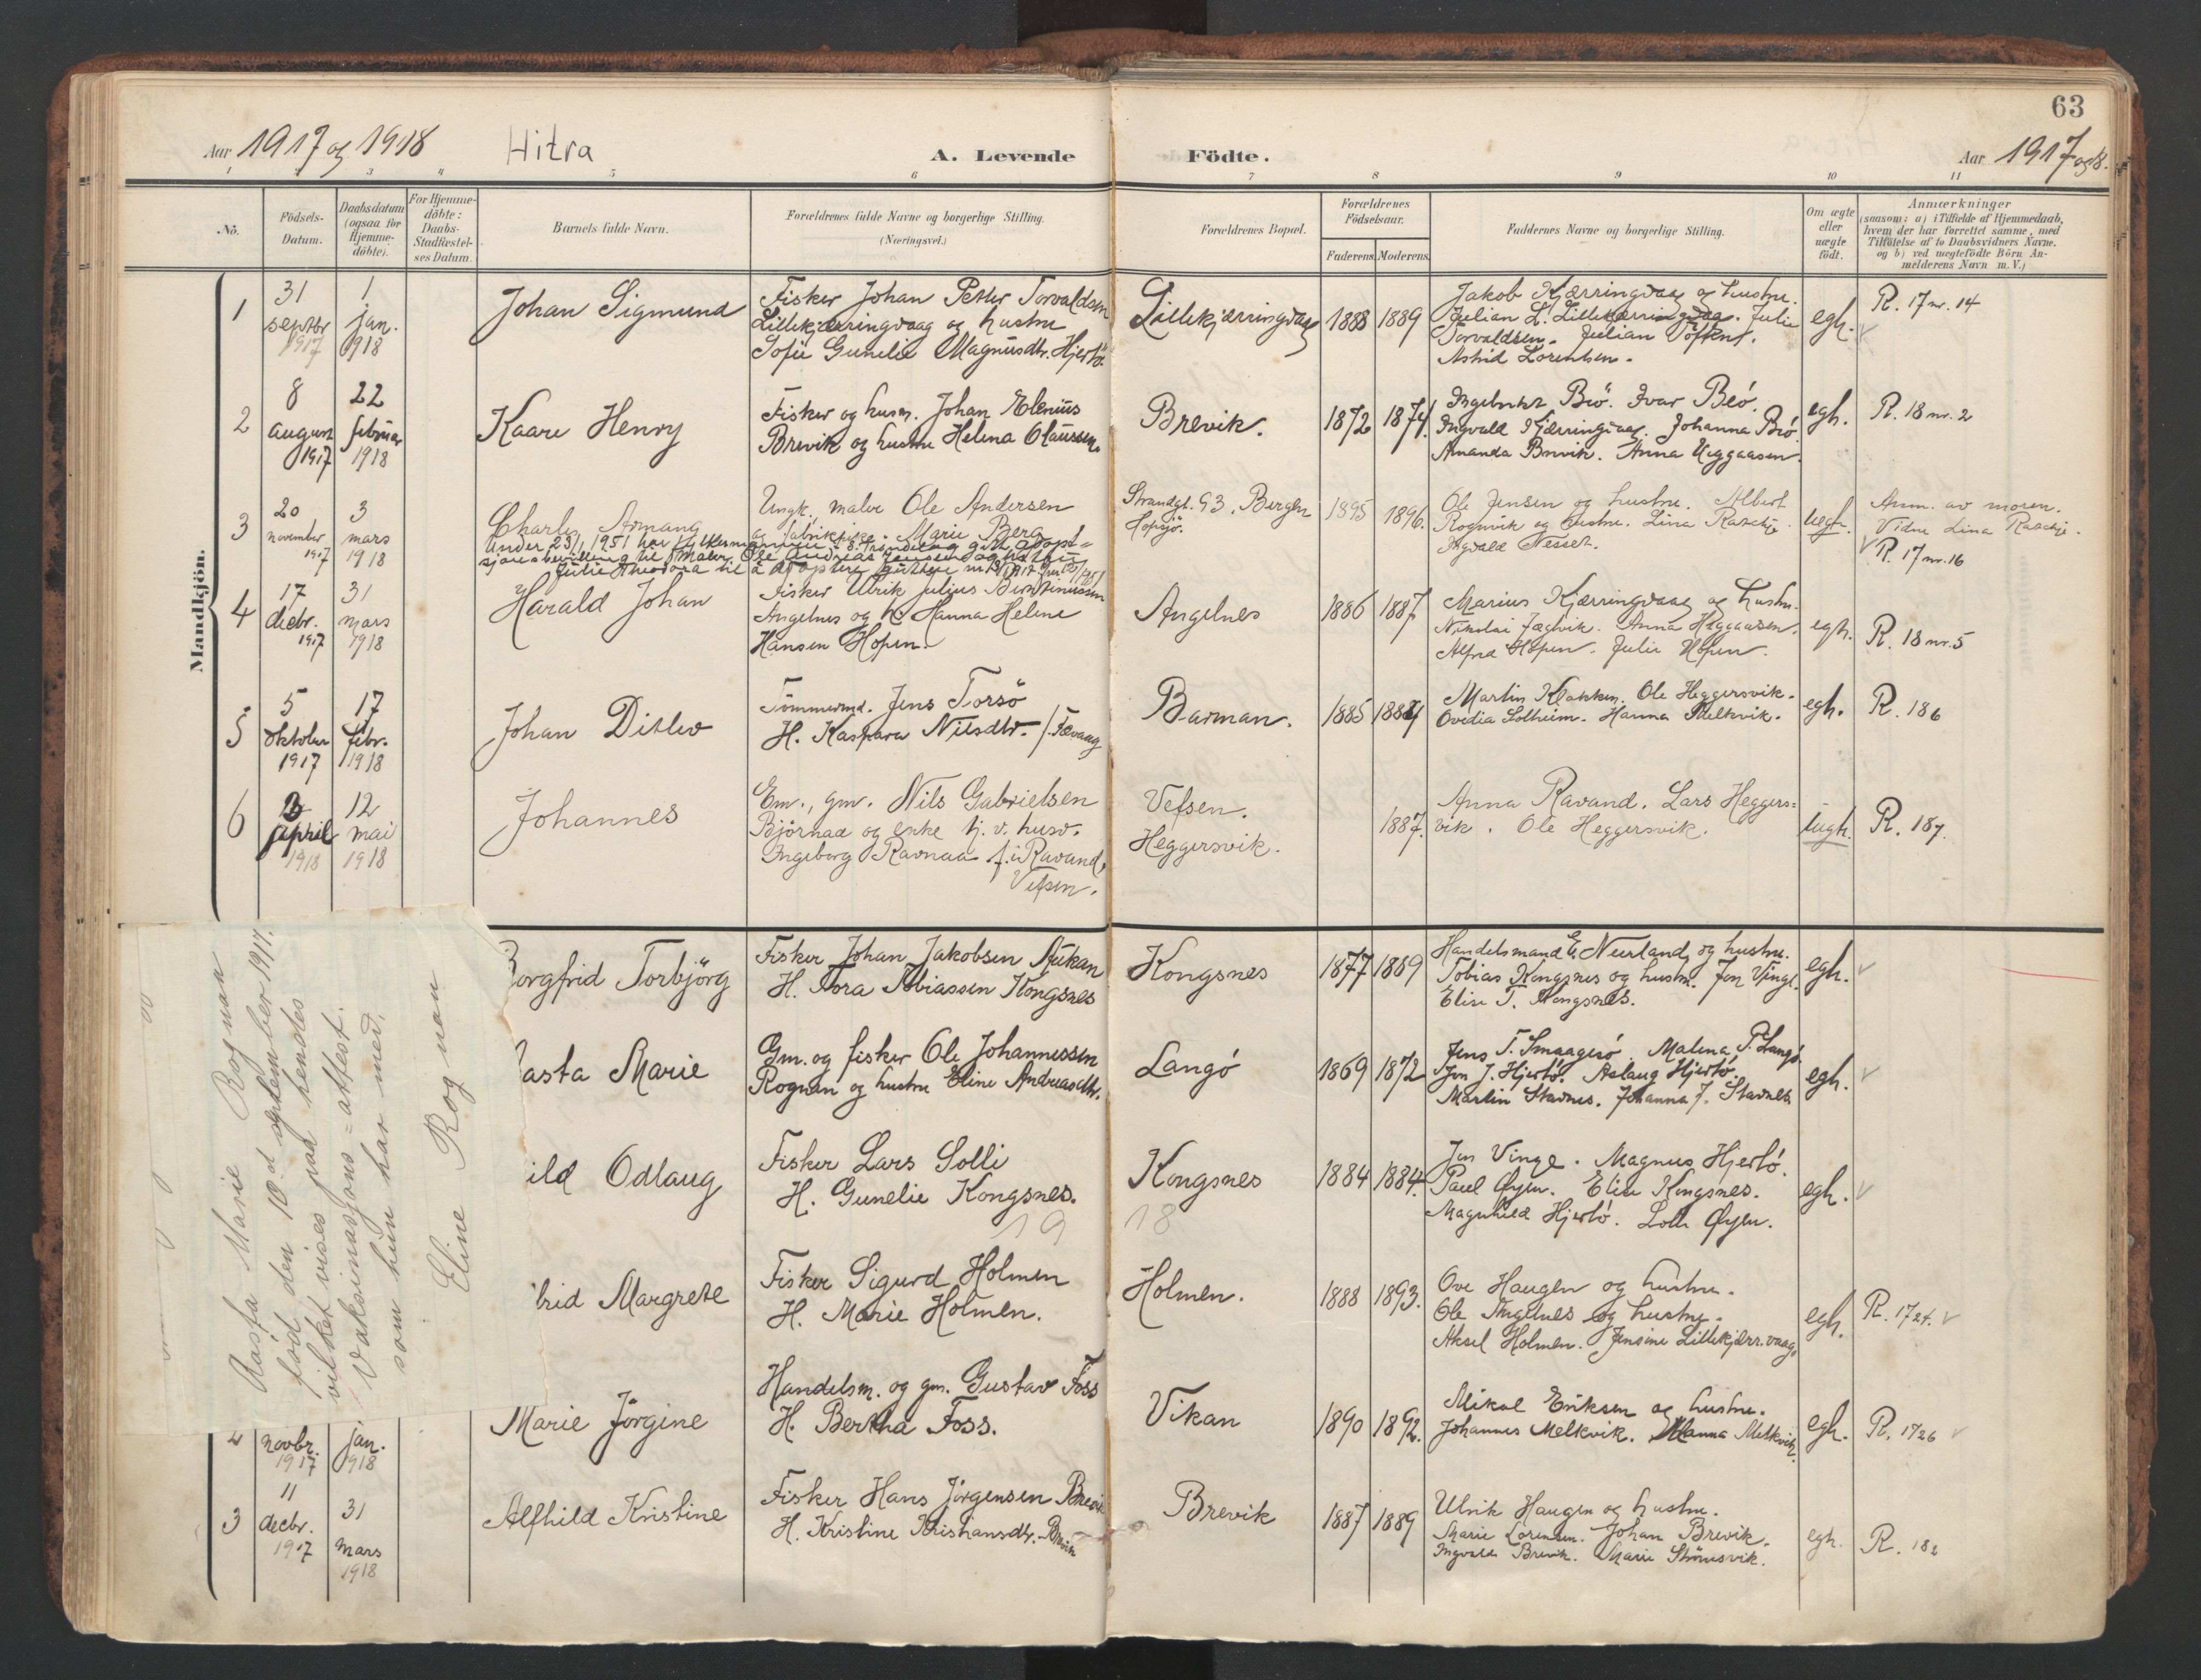 63
Aar 1917 og 1918 Hitra A. Levende Födte. Aar 1917 og 18.
1 2 3 4 5 6 7 8 9 10 11
No.
Födsels-
Datum.
Daabsdatum
(ogsaa for
Hjemme-
döbte).
For Hjemme-
döbte:
Daabs-
Stadfæstel-
ses Datum.
Barnets fulde Navn.
Forældrenes fulde Navne og borgerlige Stilling.
(Næringsvei.)
Forældrenes Bopæl.
Forældrenes
Födselsaar.
Faderens. Moderens.
Faddernes Navne og borgerlige Stilling.
Om ægte
eller
uægte
födt.
Anmærkninger
(saasom: a) i Tilfælde af Hjemmedaab,
hvem der har forrettet samme, med
Tilföielse af to Daabsvidners Navne.
og b) ved uægtefödte Börn An-
melderens Navn m. V.)
Mandkjön.
1
31
septbr
1917
1
jan.
1918
Johan Sigmund
Fisker Johan Petter Torvaldsen
Lillekjærringvaag og hustru
Sofie Gunelie Magnusdtr. Hjertö.
Lillekjærringvaag
1888 1889
Jakob Kjærringvaag og hustru.
Julian L. Lillekjærringvaag. Julie
Torvaldsen. Julian
Astrid Lorentsen.
egh.
R. 17 nr. 14
2
8
august
1917
22
februar
1918
Kaare Henry
Fisker og husm. Johan Elenius
Brevik og hustru Helena Olaussen.
Brevik.
1872 1874.
Ingebrikt Brö. Ivar Brö.
Ingvald Kjærringvaag. Johanna Brö.
Amanda Brevik. Anna Heggaasen.
egh.
R. 18 nr. 2
3
20
november
1917
3
mars
1918
Charles Armang
Ungk. maler Ole Andersen
og fabrikpike Marie Berg
Under 23/1 1951 har fylkesmannen i S. Tröndelag gitt adopt=
sjonsbevilling til maler Ole Andreas Jensen og hustru
Julie Theodora til å adoptere
Strandgt. 93. Bergen
Hopsjö.
1895 1896.
Ole Jensen og hustru. Albert
Rognvik og hustru. Lina
Ingvald Nesset.
uegh.
Anm. av moren.
Vidne Lina
R. 17 nr. 16
4
17
decbr.
1917
31
mars
1918
Harald Johan
Fisker Ulrik Julius Berntinussen
Angelnes og h. Hanna Helene
Hansen Hopen.
Angelnes
1886 1887
Marius Kjærringvaag og hustru.
Nikolai Fagvik. Anna Heggaasen.
Alfred Hopen. Julie Hopen.
egh.
R. 18 nr. 5
5
5
oktober
1917
17
febr.
1918
Johan Ditlev
Tömmermd. Jens Torsö
H. Kaspara Nilsdtr. f. Fævaag
Barman.
1885 1884
Martin Klakken. Ole Heggersvik.
Ovidia Solheim. Hanna Melkvik.
egh.
R. 18 6
6
3
april
1918
12
mai
1918
Johannes
Em., gm. Nils Gabrielsen
Björnaa og enke tj. v. husv.
Ingeborg Ravnaa f. i Ravand,
Vefsen.
Vefsen.
Heggersvik.
1887.
Anna Ravand. Lars Heggers=
vik. Ole Heggersvik.
uegh.
R. 18 7.
orgfrid Torbjörg
Fisker Johan Jakobsen Aukan
H. Tora Tobiassen Kongsnes
Kongsnes
1877 1889
Handelsmand E. Neerland og hustru.
Tobias Kongsnes og hustru. Jon Vinge.
Elise T. Kongsnes.
egh.
asta Marie
Gm. og fisker Ole Johannessen
Rognan og hustru Eline Andreasdtr.
Langö
1869 1872
Jens T. Smaagesö. Malena P. Langö.
Jon J. Hjertö. Aslaug Hjertö.
Martin Stavnes. Johanna J. Stavnes
egh.
ild Odlaug
Fisker Lars Solli
H. Gunelie Kongsnes.
Kongsnes
1884 1884.
Jon Vinge. Magnus Hjertö.
Paul Øyen. Elise Kongsnes.
Magnhild Hjertö. Lotte Øyen.
egh.
19 18
rid Margrete
Fisker Sigurd Holmen
H. Marie Holmen.
Holmen.
1888 1893.
Ove Haugen og hustru.
Ole Angelnes og hustru.
Aksel Holmen. Jensine Lillekjærr.vaag.
egh.
R. 17 24.
2
novbr.
1917
jan.
1918
Marie Jörgine
Handelsm. og gm. Gustav Foss
H. Bertha Foss.
Vikan
1890 1892.
Mikal Eriksen og hustru.
Johannes Melkvik. Hanna Melkvik.
egh.
R. 17 26
3
11
decbr.
1917
31
mars
1918
Alfhild Kristine
Fisker Hans Jörgensen Brevik
H. Kristine Kristiansdtr. Brevik
Brevik
1887 1889
Ulrik Haugen og hustru.
Marie Lorentzen. Johan Brevik.
Ingvald Brevik. Marie Strömsvik.
egh.
R. 18 2
Aasta Marie Rognan
föd den 10.d september 1917.
vilket vises paa hendes
Vaksinasjons=attest.
som hun har med.
Eline Rognan